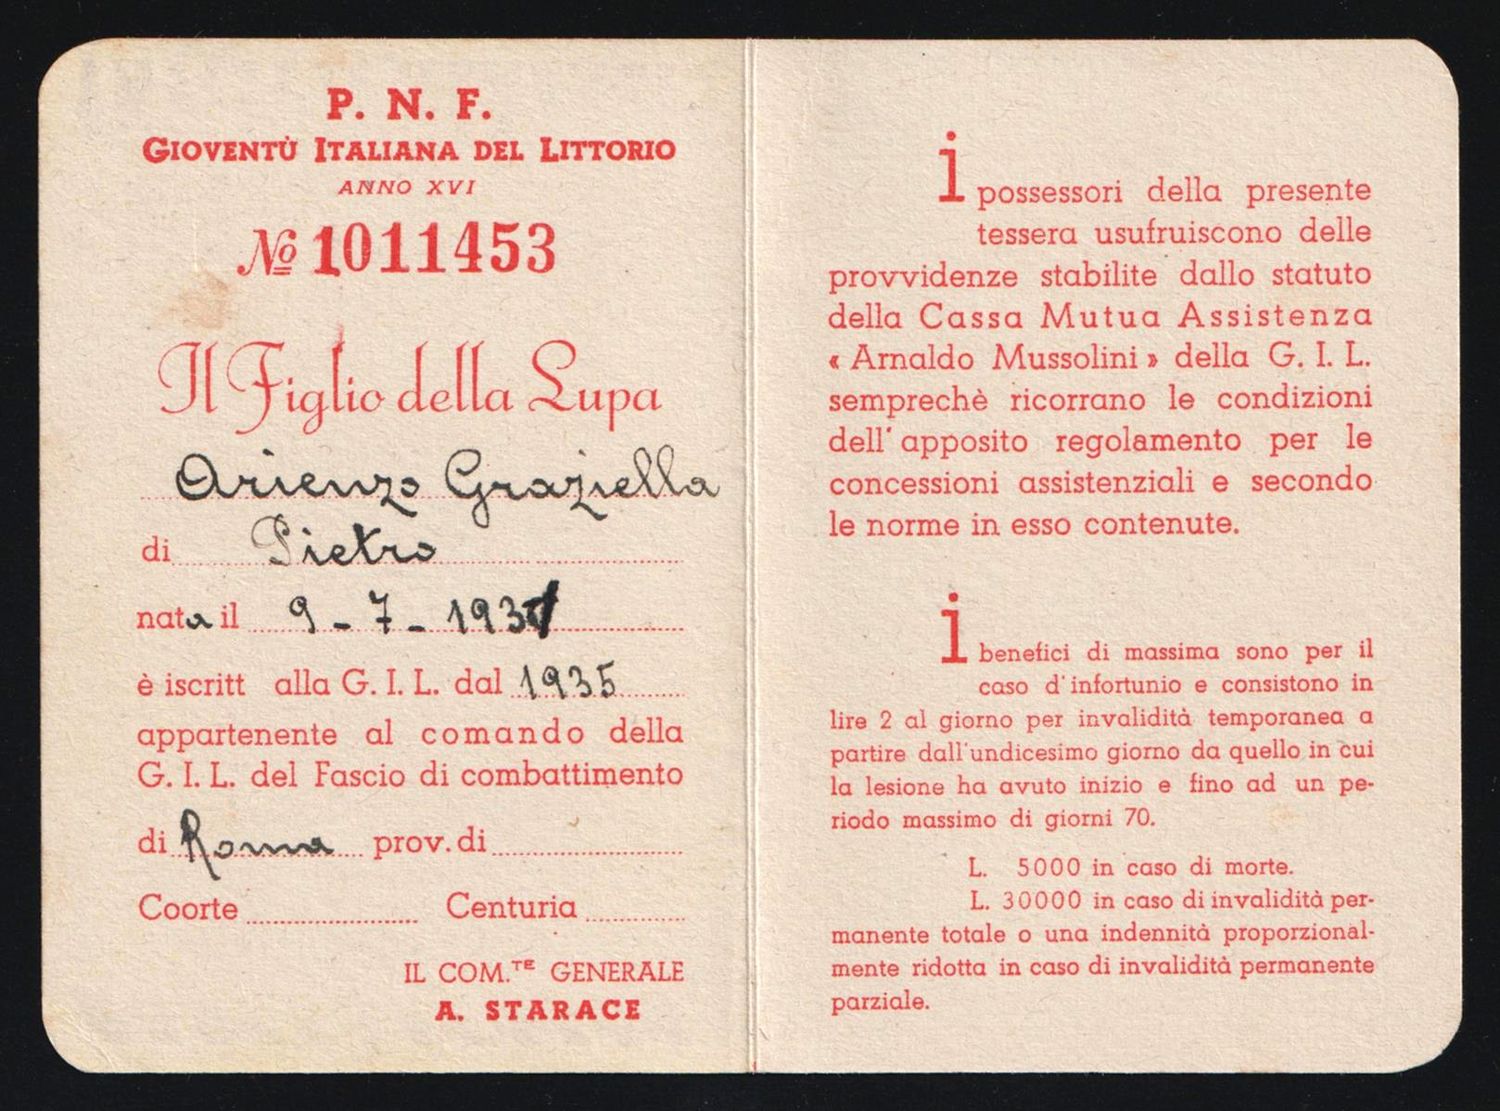 P. N. F.
GIOVENTÙ ITALIANA DEL LITTORIO
ANNO XVI
No 1011453
Il Figlio della Lupa
Arienzo Graziella
di Pietro
nata il 9 - 7 - 193
è iscritt alla G. I. L. dal 1935
appartenente al comando della
G. I. L. del Fascio di combattimento
di Roma prov. di
Coorte Centuria
IL COM.TE GENERALE
A. STARACE
i possessori della presente
tessera usufruiscono delle
provvidenze stabilite dallo statuto
della Cassa Mutua Assistenza
« Arnaldo Mussolini » della G. I. L.
semprechè ricorrano le condizioni
dell' apposito regolamento per le
concessioni assistenziali e secondo
le norme in esso contenute.
i benefici di massima sono per il
caso d' infortunio e consistono in
lire 2 al giorno per invalidità temporanea a
partire dall'undicesimo giorno da quello in cui
la lesione ha avuto inizio e fino ad un pe-
riodo massimo di giorni 70.
L. 5000 in caso di morte.
L. 30000 in caso di invalidità per-
manente totale o una indennità proporzional-
mente ridotta in caso di invalidità permanente
parziale.